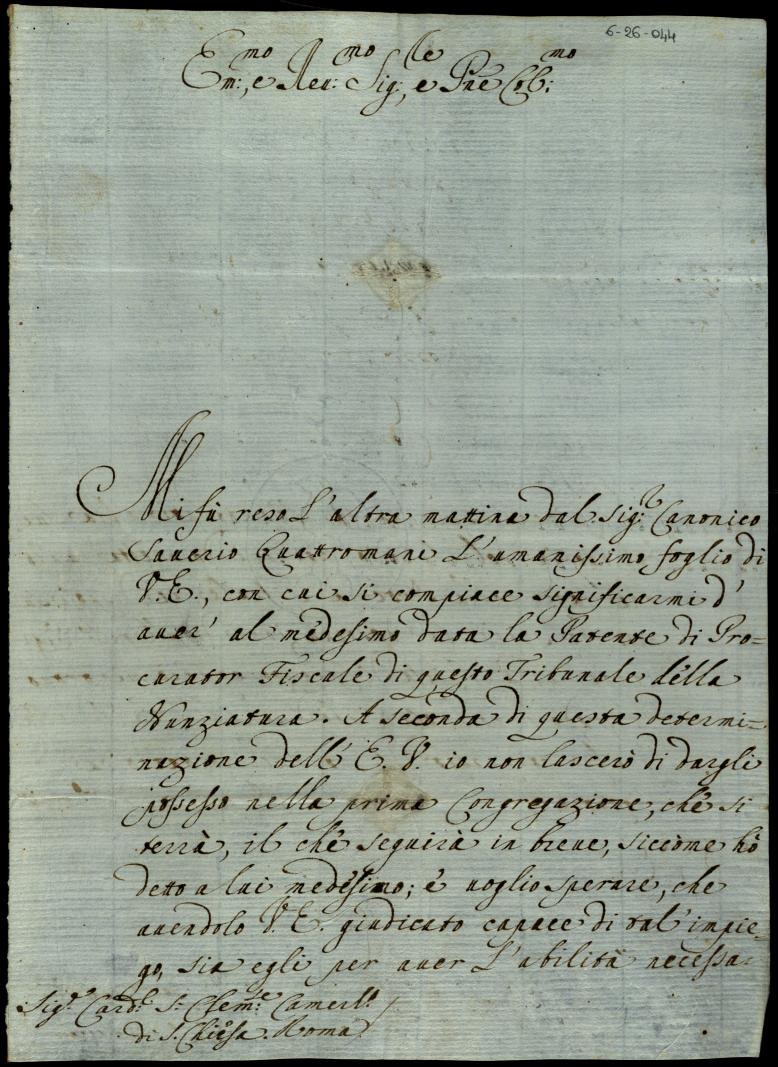 6-26-044
Em:mo, e Reu:mo Sig:, e Pne Col:mo
Mi fù reso l'altra mattina dal Sig:r Canonico
Sauerio Quattromani l'umanissimo foglio di
V. E., con cui si compiace significarmi d'
auer' al medesimo data la Patente di Pro=
curator Fiscale di questo Tribunale della
Nunziatura. A seconda di questa determi=
nazione dell' E. V. io non lascerò di dargli
possesso nella prima Congregazione, che si
terrà, il che seguirà in breue, siccome hò
detto a lui medesimo; è uoglio sperare, che
auendolo V. E. giudicato capace di tal' impie=
go, sia egli per auer l'abilità necessa=
Sig.r Card.le S. Clem.te Camerl.o
di S. Chiesa. Roma